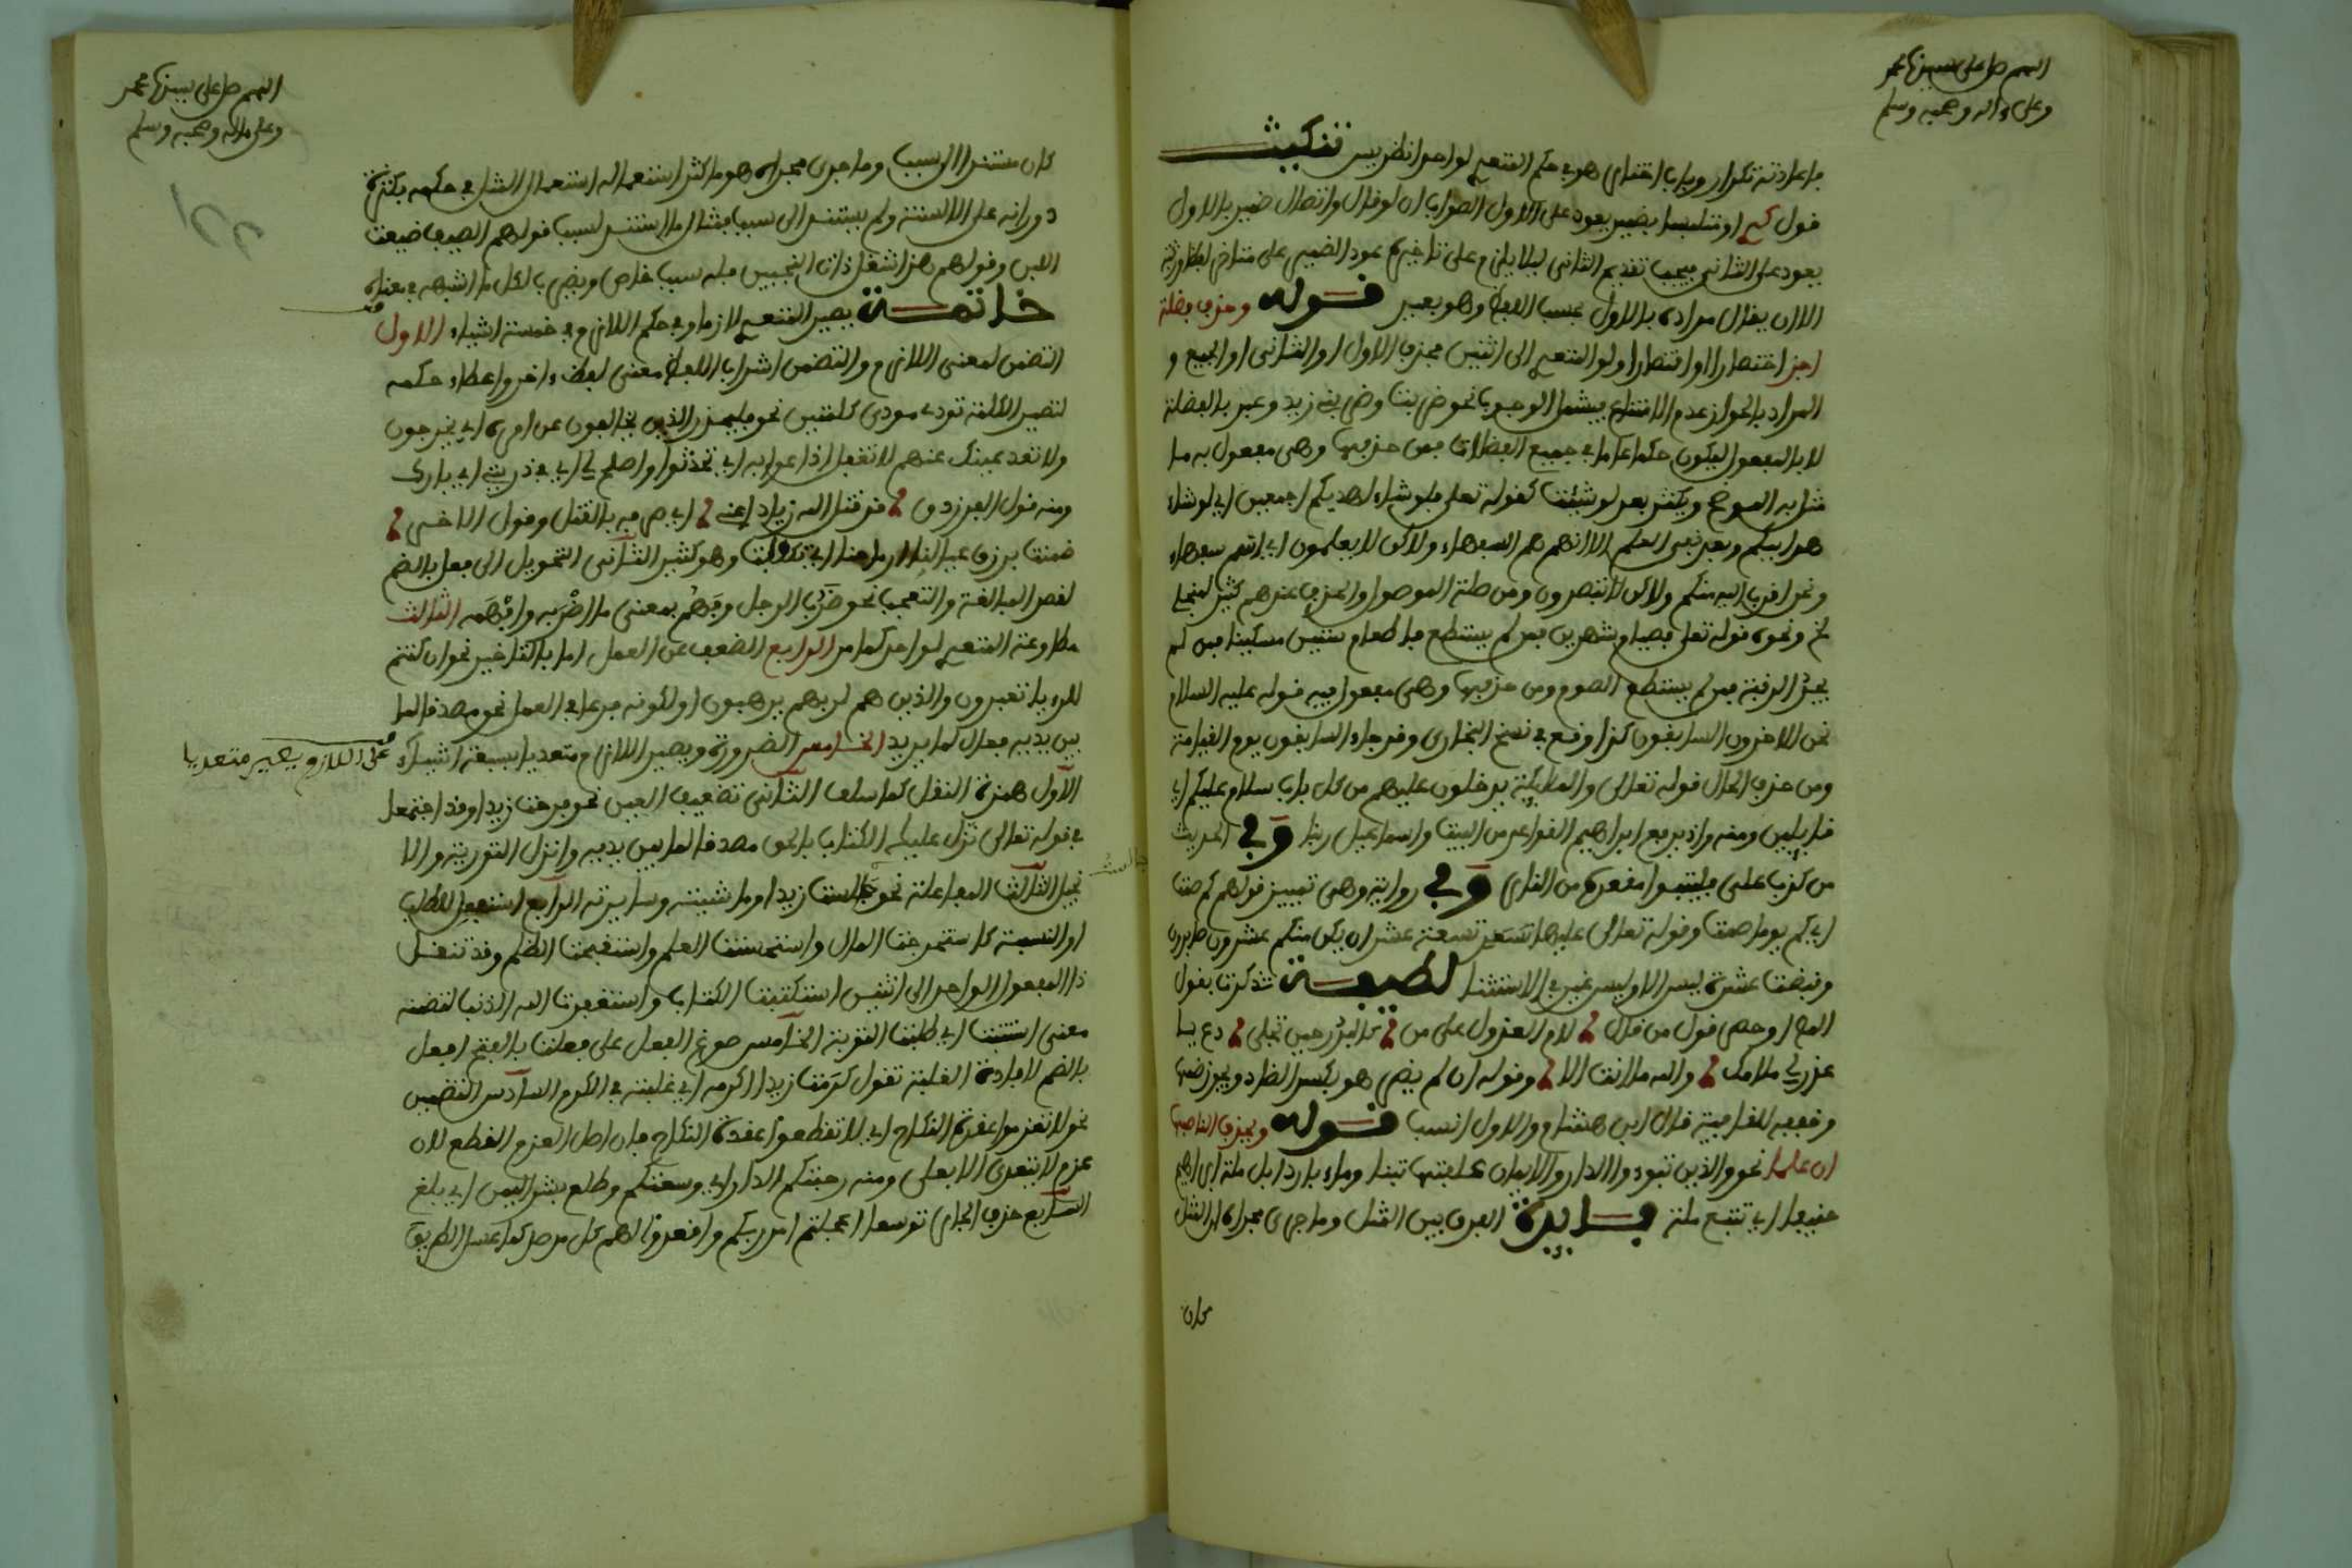 اللهم صل على سيدنا محمد
وعلى ءاله وصحبه وسلم
فاعادته تكرار وباب اختار هو في حكم المتعدي لواحد انظر يس تنكيت
قول كبير او متلبسا بضمير يعود على الاول الصواب ان لو قال واتصال ضمير بالاول
يعود على الثاني فيجب تقديم الثاني ليلا يلزم على تاخيره عود الضمير على متاخر لفظا ورتبة
الا ان يقال مراده بالاول بحسب اللفظ وهو بعيد قوله وحذف فضلة
اجز اختصارا او اقتصارا ولو المتعدي الى اثنين بحذف الاول او الثاني او الجميع و
المراد بالجواز عدم الامتناع فيشمل الوجوب نحو ضربت وضربني زيد وعبر بالفضلة
لا بالمفعول ليكون حكما عاما في جميع الفضلات فمن حذفها وهي مفعول به ما
مثل به الموضح ويكثر بعد لو شئت كقوله تعلى فلو شاء لهديكم اجمعين اي لو شاء
هدايتكم وبعد نفي العلم الا انهم هم السفهاء ولاكن لا يعلمون اي انهم سفهاء
ونحن اقرب اليه منكم ولاكن لا تبصرون ومن صلة الموصول والحذف عندهم كثير منجلي
الخ ونحوه قوله تعلى فصيام شهرين فمن لم يستطع فاطعام ستين مسكينا فمن لم
يجد الرقبة فمن لم يستطع الصوم ومن حذفها وهي مفعول فيه قوله عليه السلام
نحن الاخرون السابقون كذا وقع في نسخ البخاري وقد جاء السابقون يوم القيامة
ومن حذف الحال قوله تعالى والملايكة يدخلون عليهم من كل باب سلام عليكم اي
قايلين ومنه واذ يرفع ابراهيم القواعد من البيت واسماعيل ربنا وفي الحديث
من كذب علي فليتبوا مقعده من النار وفي رواية وهي تمييز قولهم كم صمت
اي كم يوما صمت وقوله تعالى عليها تسعة عشر ان يكن منكم عشرون صابرون
وقبضت عشرة ليس الا وليس غير في الاستثنا لطيفة تذكرت بقول
لام العذول على من كالبدر حين تجلى دع يا
عذولي ملامك والله ما انت الا وقوله ان لم يضر هو بكسر الضاد ويجوز ضمها
قال ابن هشام والاول انسب قوله ويحذف الناصبها
ان علما نحو والذين تبوءو الدار والايمان علفتها تبنا وماء باردا بل ملة ابراهيم
حنيفا اي نتبع ملة فايدة الفرق بين المثل وما جرى مجراه ان المثل
كان
اللهم صل على سيدنا محمد
وعلى ءاله وصحبه وسلم
كان مستندا الى سبب وما جرى مجراه هو ما كثر استعماله استعمال المثل في حكمه بكثرة
دورانه على الالسنة ولم يستند الى سبب فمثال ما استند لسبب قولهم الصيف ضيعت
اللبن وقولهم هذا اشغل من ذات النحيين فله سبب خاص ويضرب لكل ما اشبهه في معناه
خاتمة يصير المتعدي لازما وفي حكم اللازم في خمسة اشياء الاول
التضمن لمعنى اللازم والتضمن اشراب اللفظ معنى لفظ ءاخر واعطاء حكمه
لتصير الكلمة تودي مودى كلمتين نحو فليحذر الذين يخالفون عن امره اي يخرجون
ولا تعد عينك عنهم لا تغفل اذاعوا به اي تحدثوا واصلح لي في ذريتي اي بارك
ومنه قول الفرزدق قد قتل الله زيادا عني اي صرفه بالقتل وقول الاخر
ضمنت برزق عيالنا ارماحنا اي تكفلت وهو كثير الثاني التحويل الى فعل بالضم
لقصد المبالغة والتعجب نحو ضرب الرجل وفهم بمعنى ما اضربه وافهمه الثالث
مطاوعة المتعدي لواحد كما مر الرابع الضعف عن العمل اما بالتاخير نحو ان كنتم
للرءيا تعبرون والذين هم لربهم يرهبون او لكونه فرعا في العمل نحو مصدقا لما
بين يديه فعال لما يريد الخامس الضرورة ويصير اللازم متعديا بسبعة اشياء
على اللازم يصير متعديا
الاول همزة النقل كما سلف الثاني تضعيف العين نحو فرحت زيدا وقد اجتمعا
في قوله تعالى نزل عليك الكتاب بالحق مصدقا لما بين يديه وانزل التورية والا
نجيل الثالث المفاعلة نحو جالست زيدا وماشيته وسايرته الرابع استفعل للطلب
او النسبة كاستخرجت المال واستحسنت العلم واستقبحت الظلم وقد تنقل
ذا المفعول الواحد الى اثنين استكتبت الكتاب واستغفرت الله الذنب لتضمنه
معنى استتبت اي طلبت التوبة الخامس صوغ الفعل على فعلت بالفتح افعل
بالضم لافادة الغلبة تقول كرمت زيدا اكرمه اي غلبته في الكرم السادس التضمين
نحو لا تعزموا عقدة النكاح اي لا تقطعوا عقدة النكاح فان اصل العزم القطع لان
عزم لا يتعدى الا بعلى ومنه رحبتكم الدار اي وسعتكم وطلع بشر اليمن اي بلغ
السابع حذف الجار توسعا اعجلتم امر ربكم واقعدوا لهم كل مرصد كما عسل الطريق